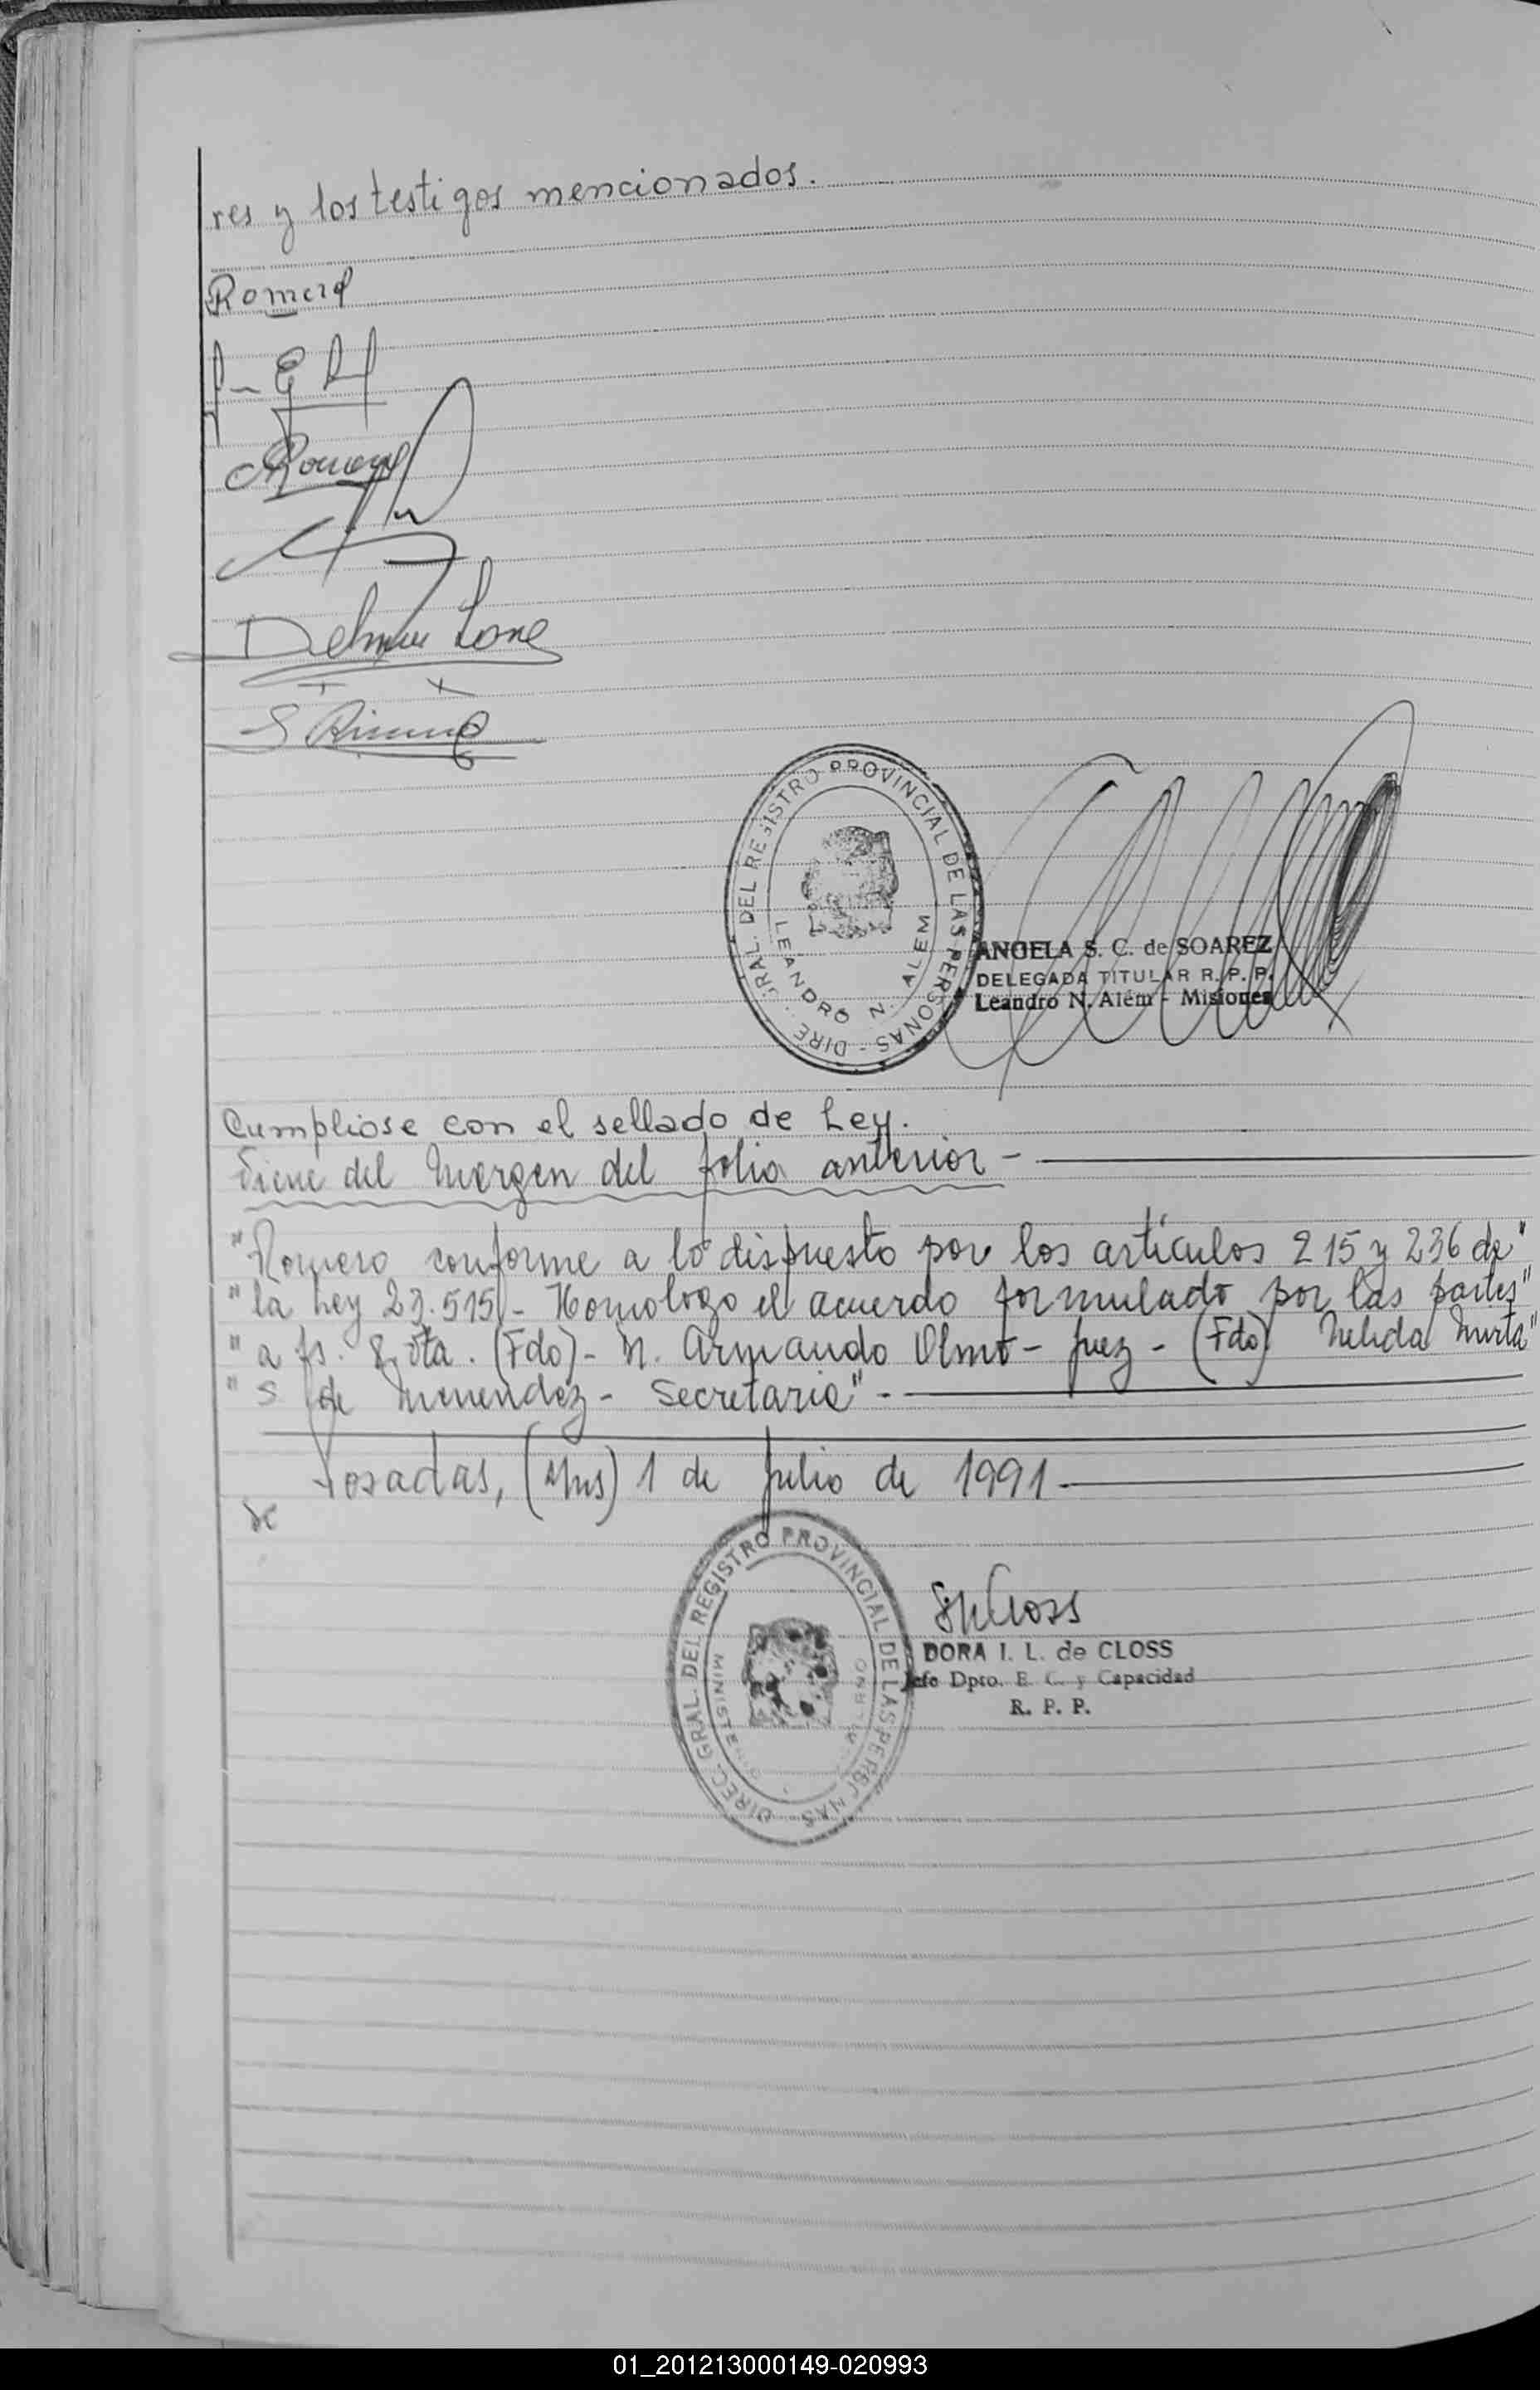 res y los testigos mencionados.
Romero
Romero
S
DIREC. GRAL. DEL REGISTRO PROVINCIAL DE LAS PERSONAS
LEANDRO N. ALEM
ANGELA S. C. de SOAREZ
DELEGADA TITULAR R. P. P.
Leandro N. Alem - Misiones
Cumpliose con el sellado de Ley.
Viene del Margen del folio anterior -
"Romero conforme a lo dispuesto por los artículos 215 y 236 de"
"la Ley 23.515 - Homologo el acuerdo formulado por las partes"
"a fs. 8 vta. (Fdo) - N. Armando Olmo - Juez - (Fdo) Nelida Mirta"
"S de Menendez - Secretaria" -
Posadas, (Mns) 1 de Julio de 1991
DIREC. GRAL. DEL REGISTRO PROVINCIAL DE LAS PERSONAS
DORA I. L. de CLOSS
Jefe Dpto. E. C. y Capacidad
R. P. P.
01_201213000149-020993